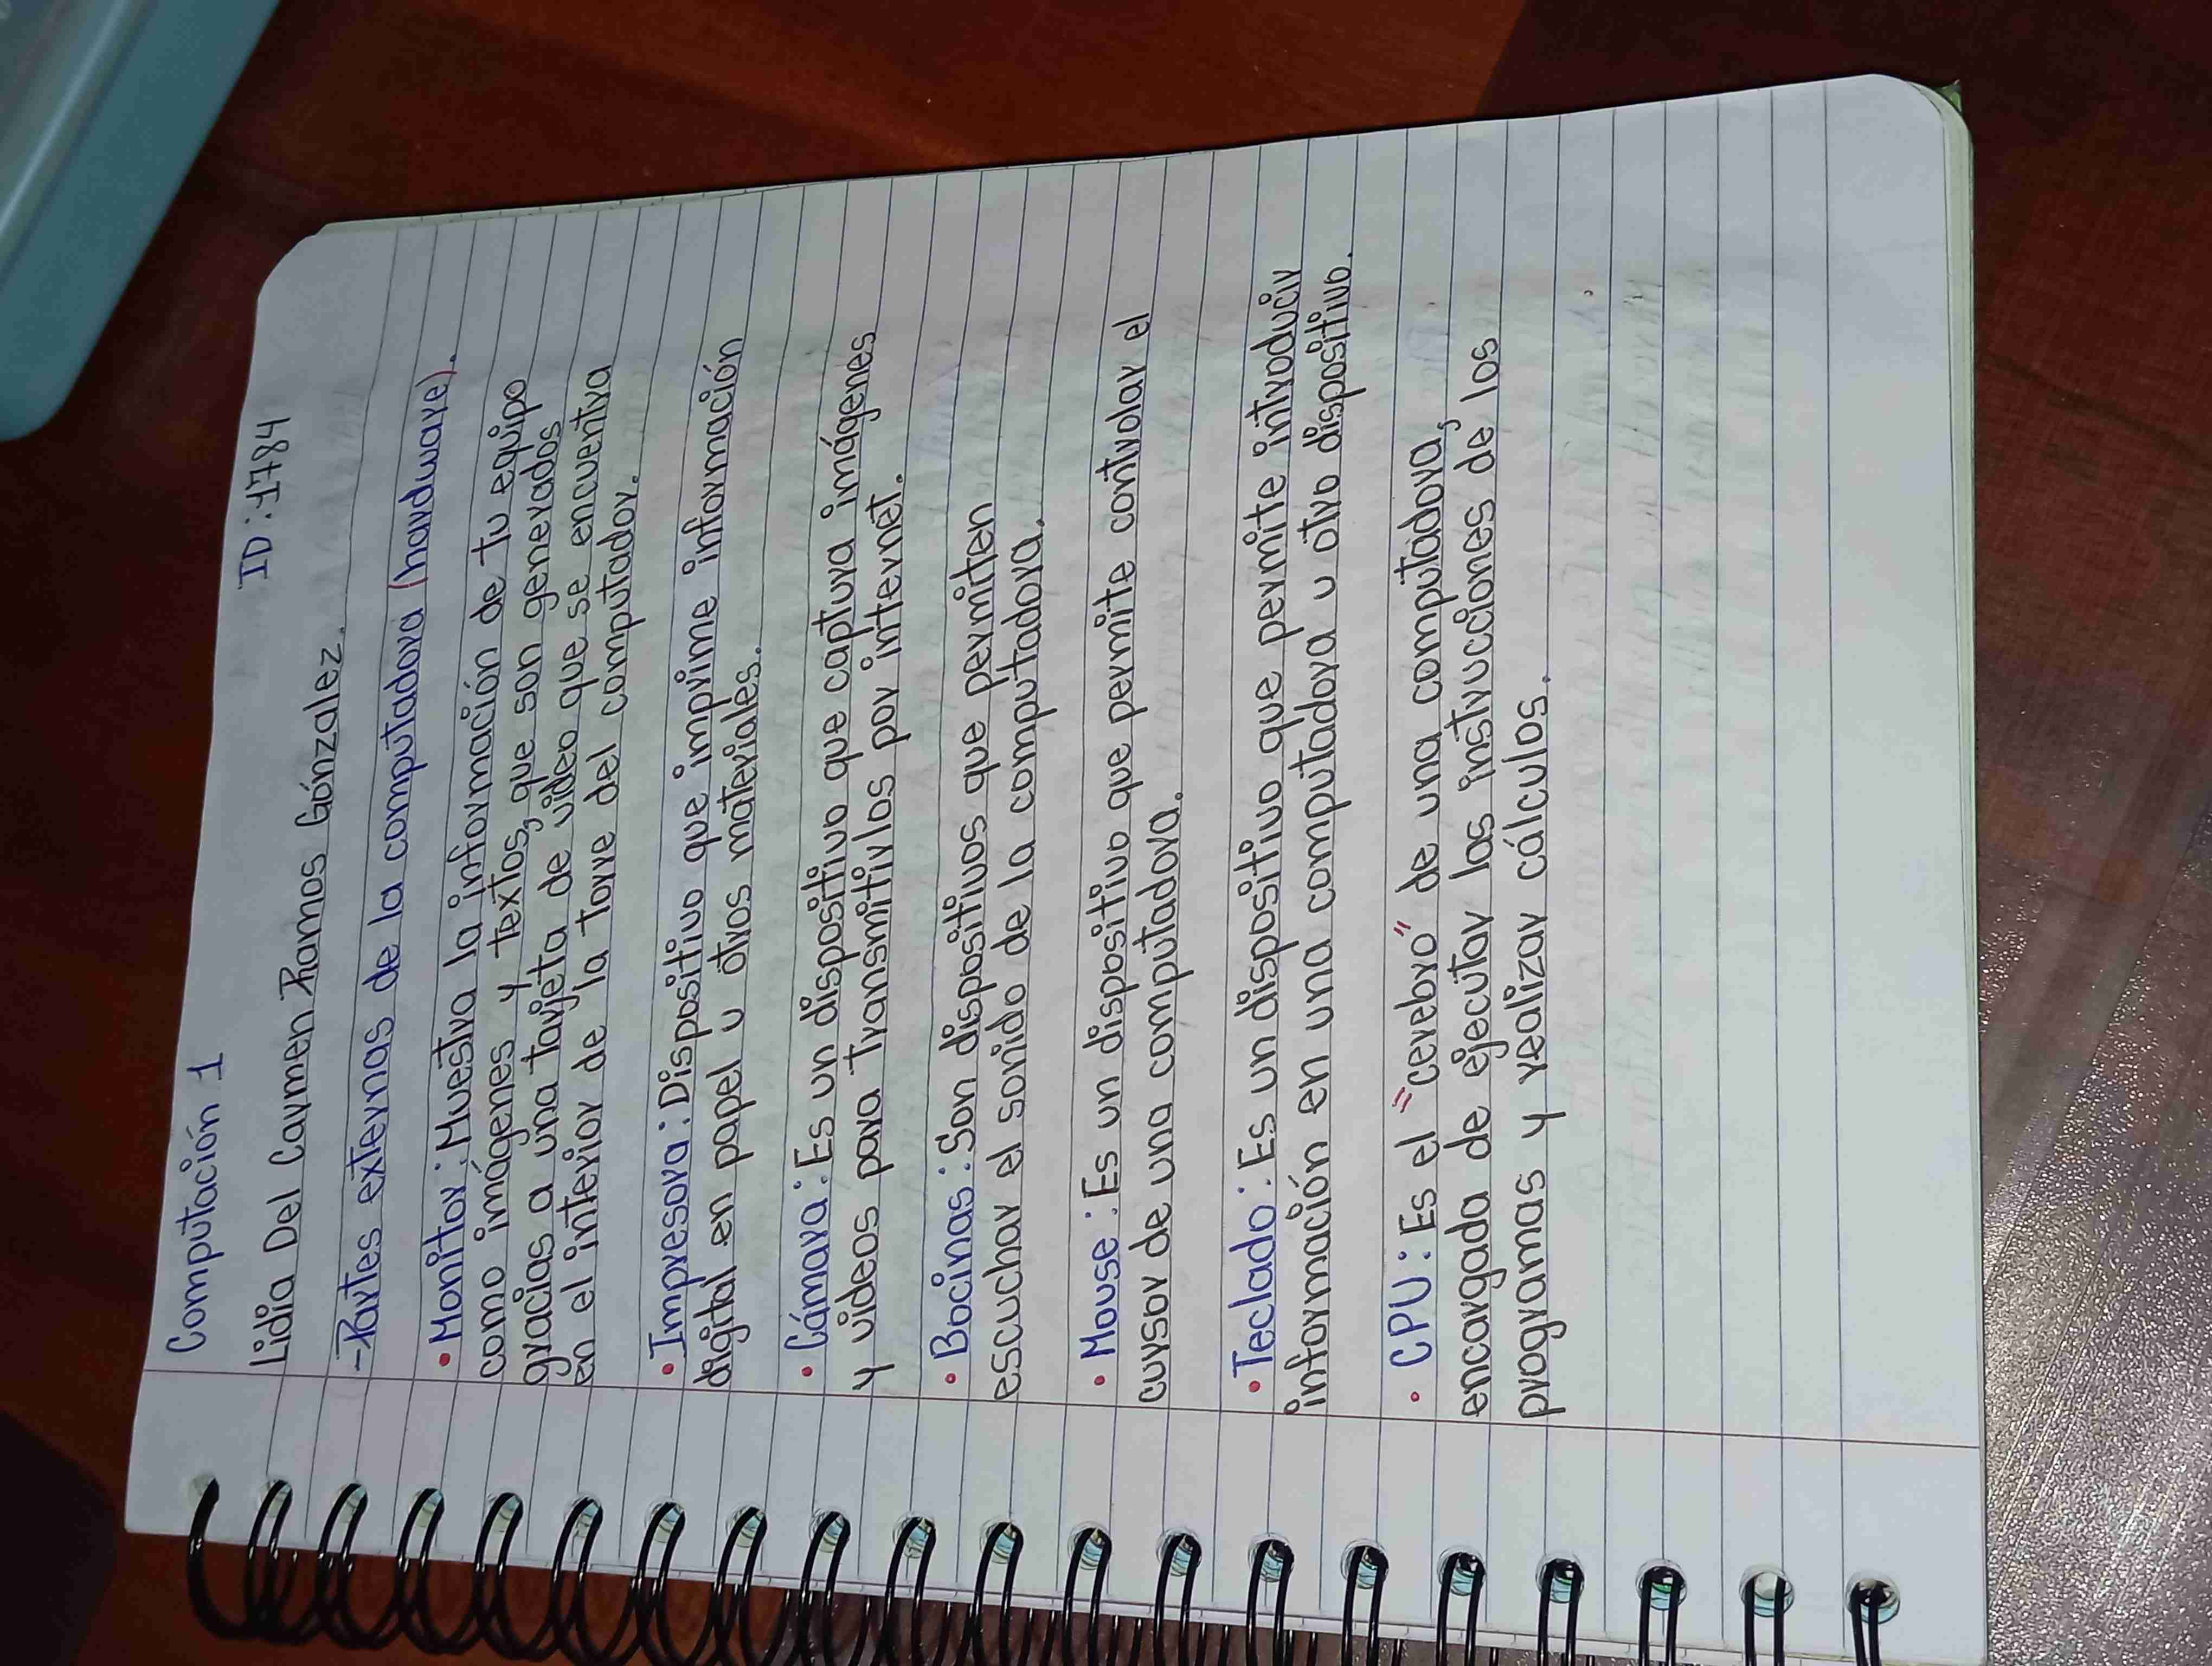 Computación 1 ID: 1784
Lidia Del Carmen Ramos Gónzalez.
-Partes externas de la computadora (hardware).
• Monitor: Muestra la información de tu equipo
como imágenes y textos, que son generados
gracias a una tarjeta de video que se encuentra
en el interior de la torre del computador.
• Impresora: Dispositivo que imprime información
digital en papel u otros materiales.
• Cámara: Es un dispositivo que captura imágenes
y videos para transmitirlos por internet.
• Bocinas: Son dispositivos que permiten
escuchar el sonido de la computadora.
• Mouse: Es un dispositivo que permite controlar el
cursor de una computadora.
• Teclado: Es un dispositivo que permite introducir
información en una computadora u otro dispositivo.
• CPU: Es el "cerebro" de una computadora,
encargada de ejecutar las instrucciones de los
programas y realizar cálculos.